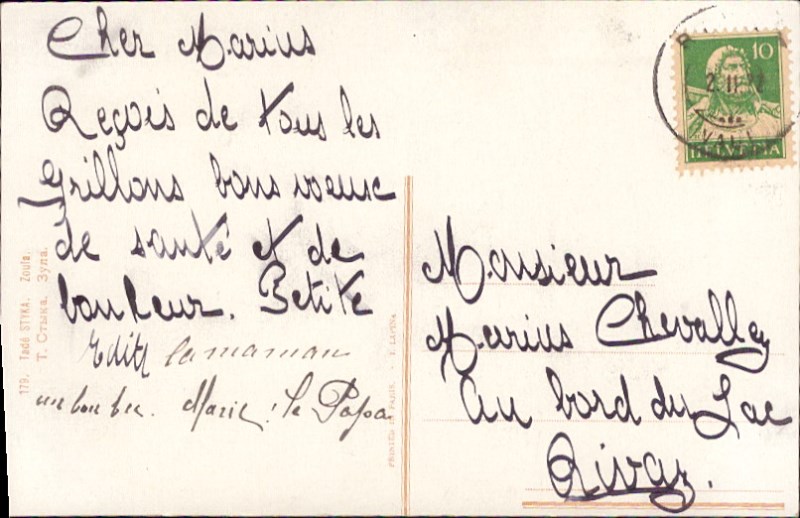 Cher Marius
Reçois de tous les
Grillons bons voeux
de santé et de
bonheur. Petite
Edith la maman
un bon bec. Marie: le Papa
Monsieur
Marius Chevalley
Au bord du Lac
Rivaz.
10
2. II.
HELVETIA
179. Tadé STYKA. Zoula.
Т. Стыка. Зула.
PRINTED IN PARIS. - I. LAPINA